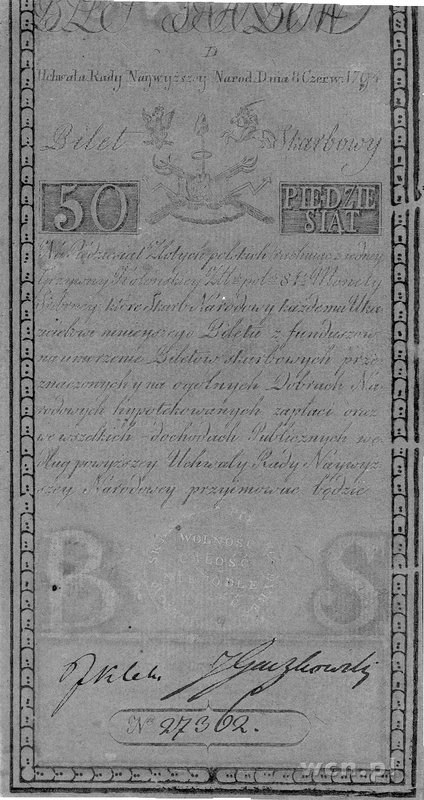 D
Uchwała Rady Naywyższey Narod. Dnia 8 Czerw. 1794
Bilet Skarbowy
50 PIĘDZIE
SIĄT
Na Pięćdziesiąt Złotych polskich rachuiąc z iedney
Grzywny Kolońskiey Zlł: pol: 84½ Monety
Srebrney, które Skarb Narodowy każdemu Uka
zicielowi ninieyszego Biletu z funduszów
na umorzenie Biletów skarbowych prze
znaczonych y na ogolnych Dobrach Na
rodowych hypotekowanych zapłaci oraz
we wszelkich dochodach Publicznych we
dług powyższey Uchwały Rady Naywyż
szey Narodowey przyimować będzie
WOLNOŚĆ
CAŁOŚĆ
NIEPODLE
B S
J Gaczkowski
No 27362.
wcn.pl